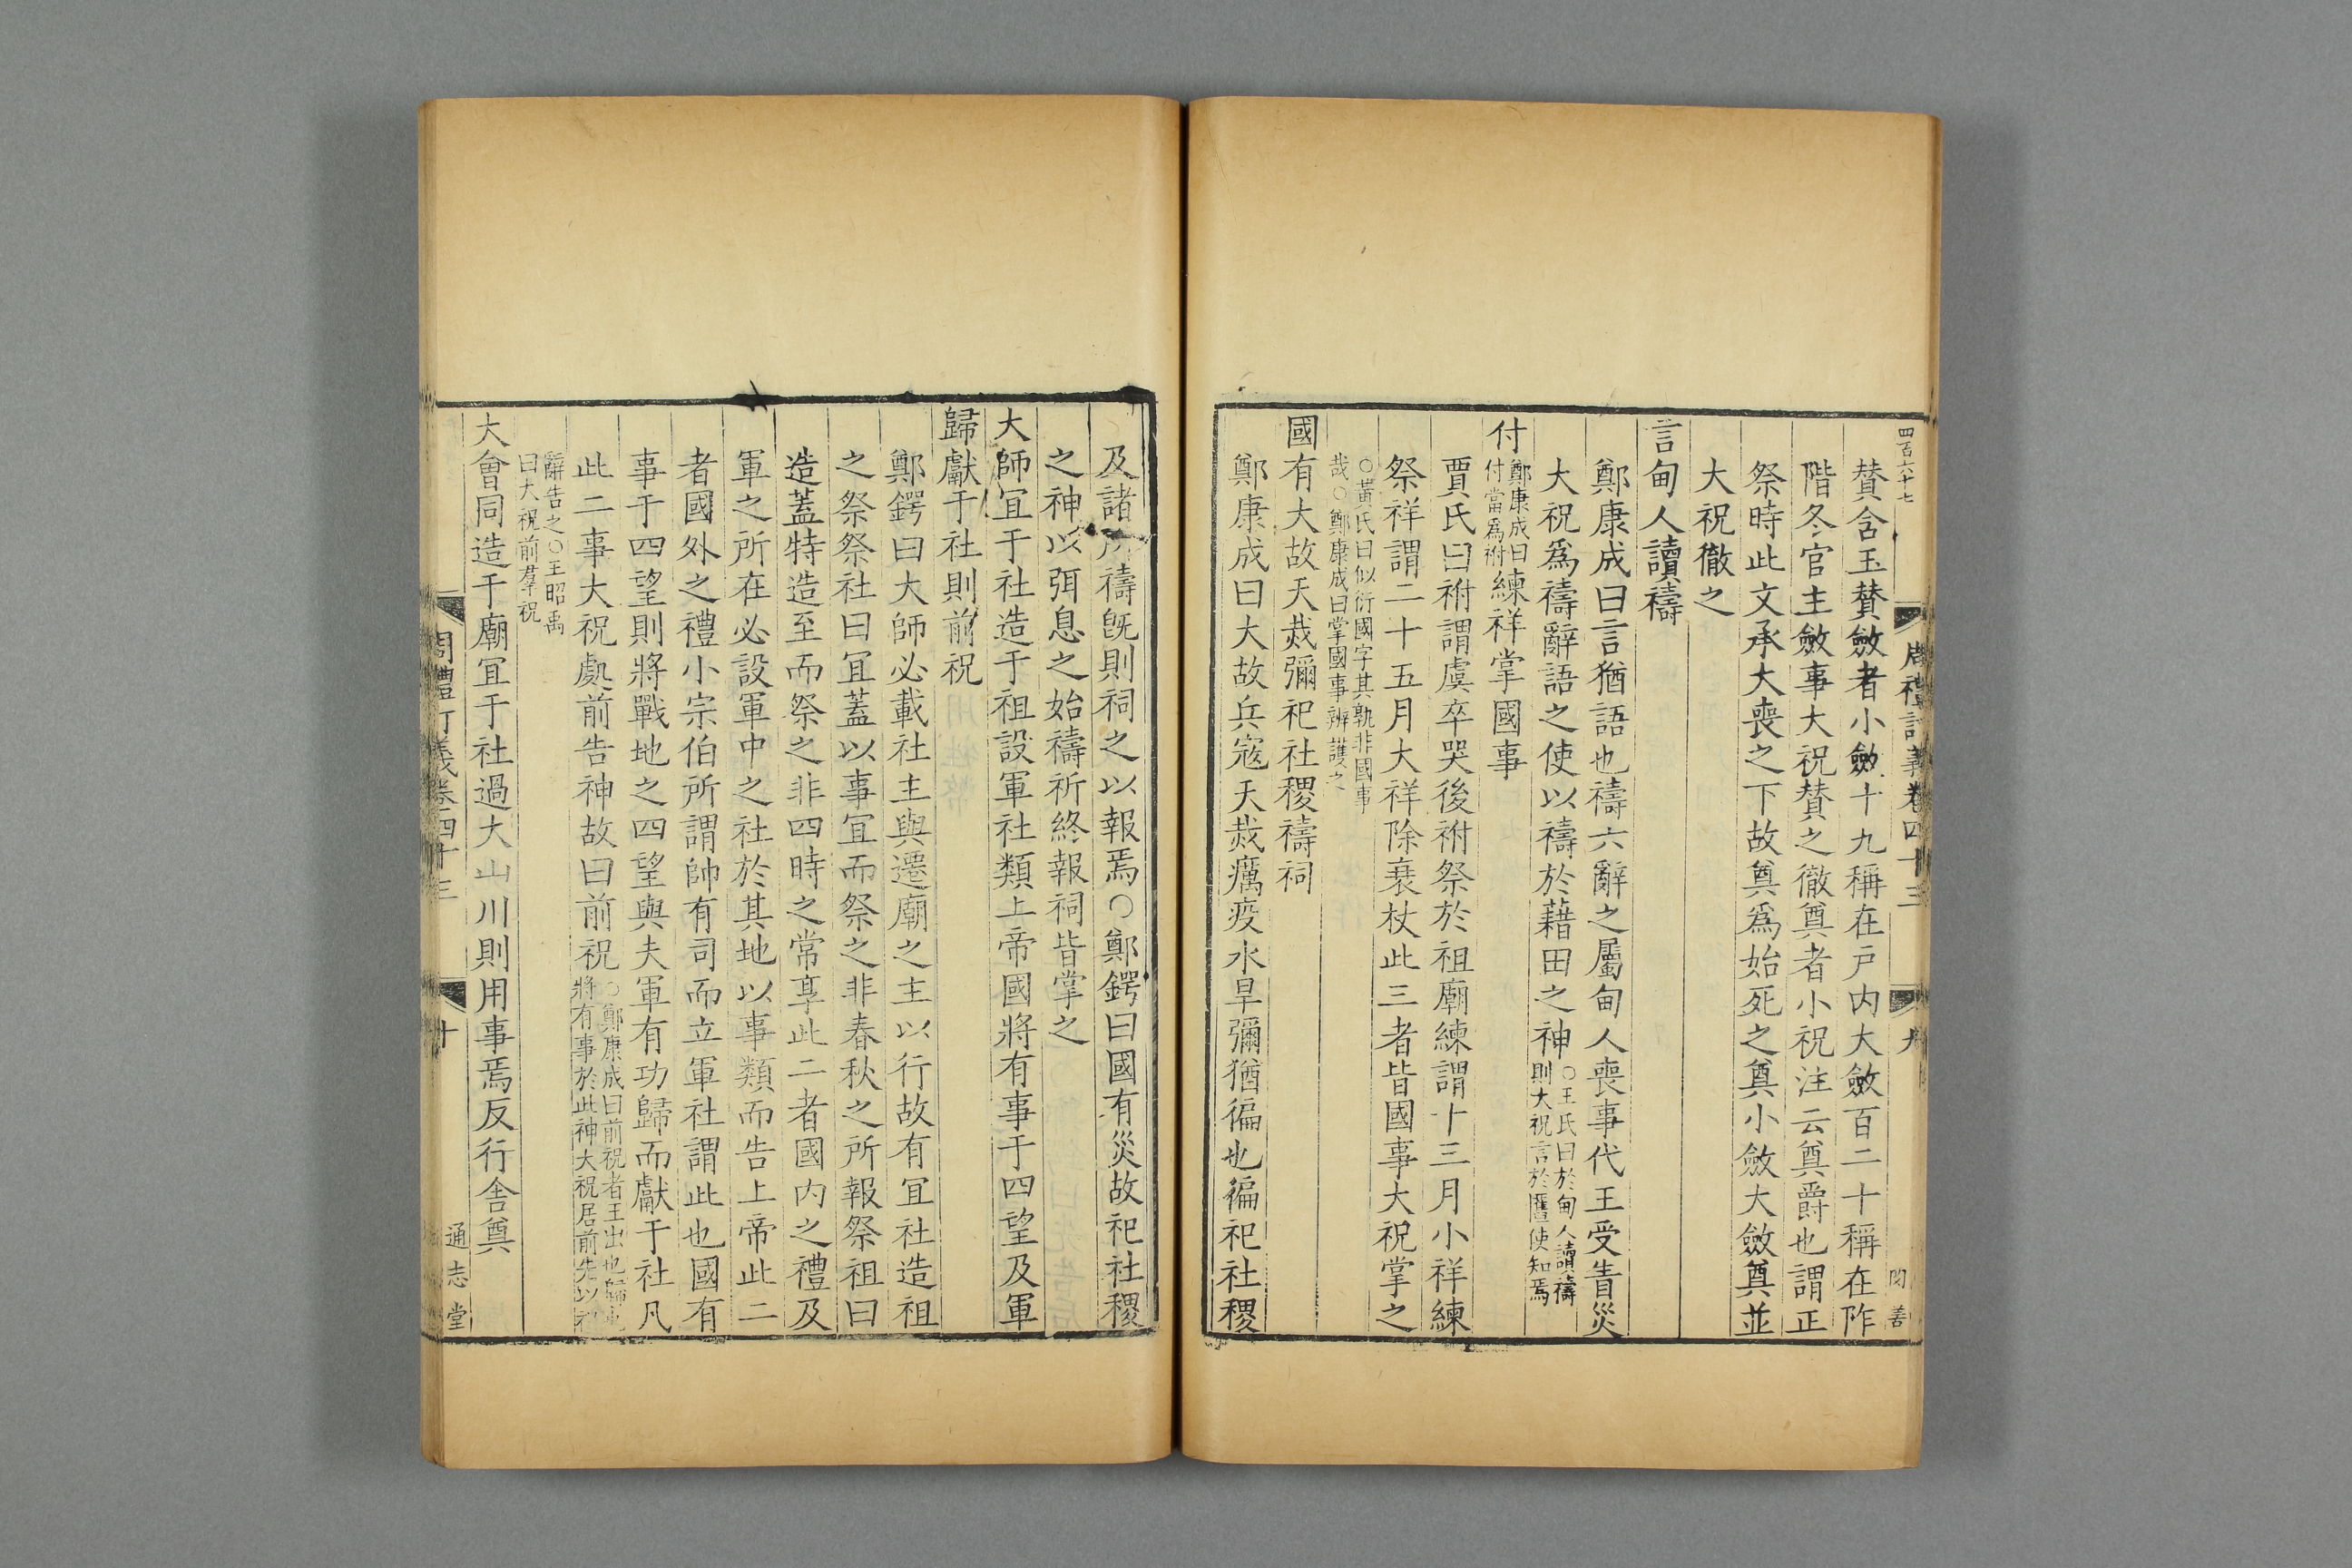 四百六十七
周禮訂義卷四十三
九
贊含玉贊斂者小斂十九稱在戸内大斂百二十稱在阼
階冬官主斂事大祝贊之徹奠者小祝注云奠爵也謂正
祭時此文承大喪之下故奠爲始死之奠小斂大斂奠並
大祝徹之
言甸人讀禱
鄭康成曰言猶語也禱六辭之屬甸人喪事代王受眚災
大祝爲禱辭語之使以禱於藉田之神
○王氏曰於甸人讀禱
則大祝言於匶使知焉
付
鄭康成曰
付當爲祔
練祥掌國事
賈氏曰祔謂虞卒哭後祔祭於祖廟練謂十三月小祥練
祭祥謂二十五月大祥除衰杖此三者皆國事大祝掌之
○黃氏曰似衍國字其孰非國事
哉○鄭康成曰掌國事辨護之
國有大故天烖彌祀社稷禱祠
鄭康成曰大故兵寇天烖癘疫水旱彌猶徧也徧祀社稷
及諸所禱旣則祠之以報焉○鄭鍔曰國有災故祀社稷
之神以弭息之始禱祈終報祠皆掌之
大師宜于社造于祖設軍社類上帝國將有事于四望及軍
歸獻于社則前祝
鄭鍔曰大師必載社主與遷廟之主以行故有宜社造祖
之祭祭社曰宜蓋以事宜而祭之非春秋之所報祭祖曰
造蓋特造至而祭之非四時之常享此二者國内之禮及
軍之所在必設軍中之社於其地以事類而告上帝此二
者國外之禮小宗伯所謂帥有司而立軍社謂此也國有
事于四望則將戰地之四望與夫軍有功歸而獻于社凡
此二事大祝處前告神故曰前祝
○鄭康成曰前祝者王出也歸也
將有事於此神大祝居前先以祝
辭告之○王昭禹
曰大祝前羣祝
大會同造于廟宜于社過大山川則用事焉反行舍奠
周禮訂義卷四十三
十
通志堂